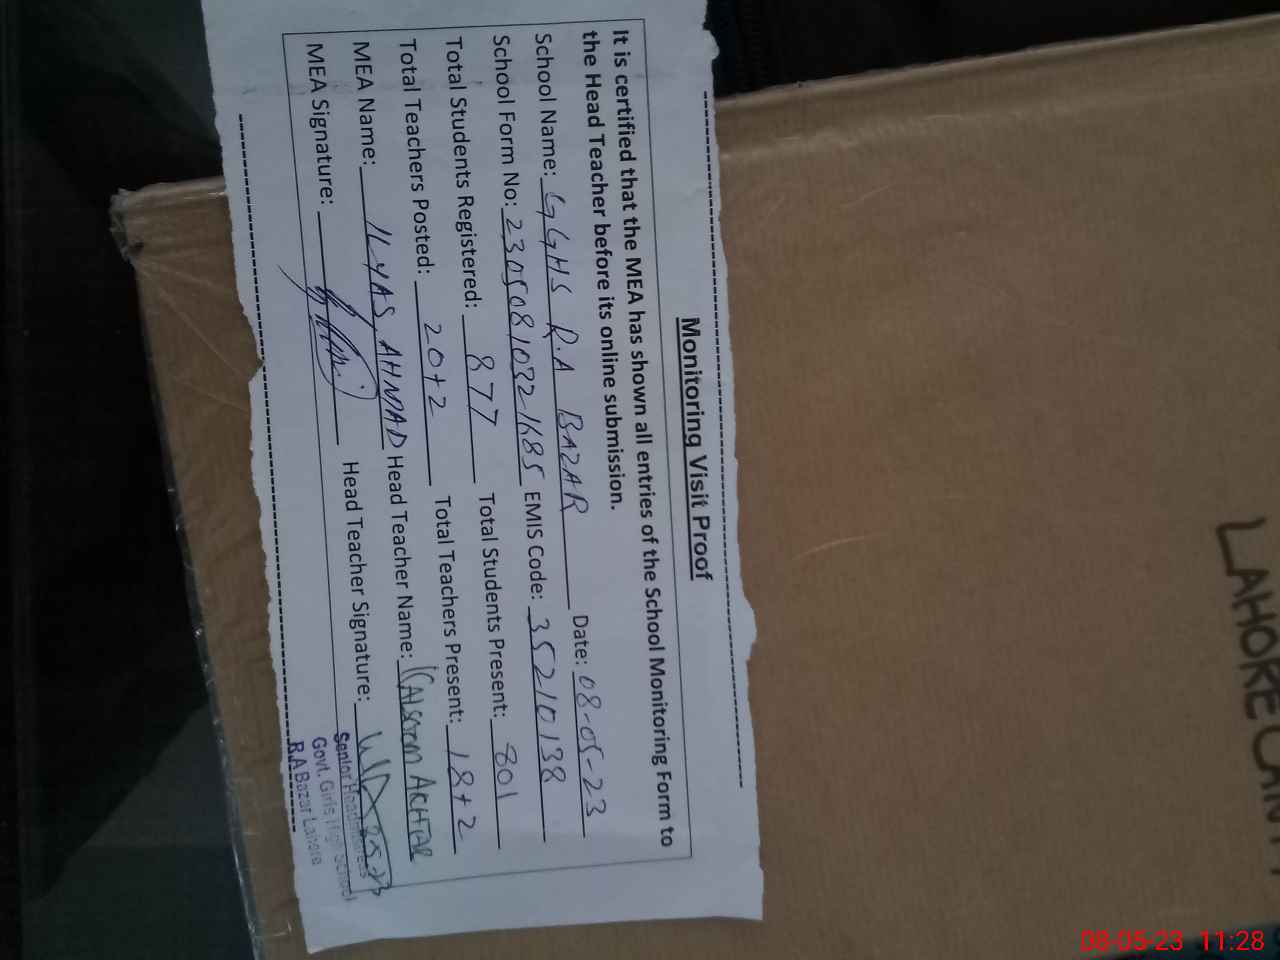 Monitoring Visit Proof
It is certified that the MEA has shown all entries of the School Monitoring Form to
the Head Teacher before its online submission.
School Name: GGHS R.A BAZAR Date: 08-05-23
School Form No: 23050810321685 EMIS Code: 35210138
Total Students Registered: 877 Total Students Present: 801
Total Teachers Posted: 20+2 Total Teachers Present: 18+2
MEA Name: ILYAS AHMAD Head Teacher Name: Kalsoom AKHTAR
MEA Signature: Head Teacher Signature:
Senior Headmistress
Govt. Girls High School
R.A Bazar Lahore
LAHORE CANTT
08-05-23 11:28